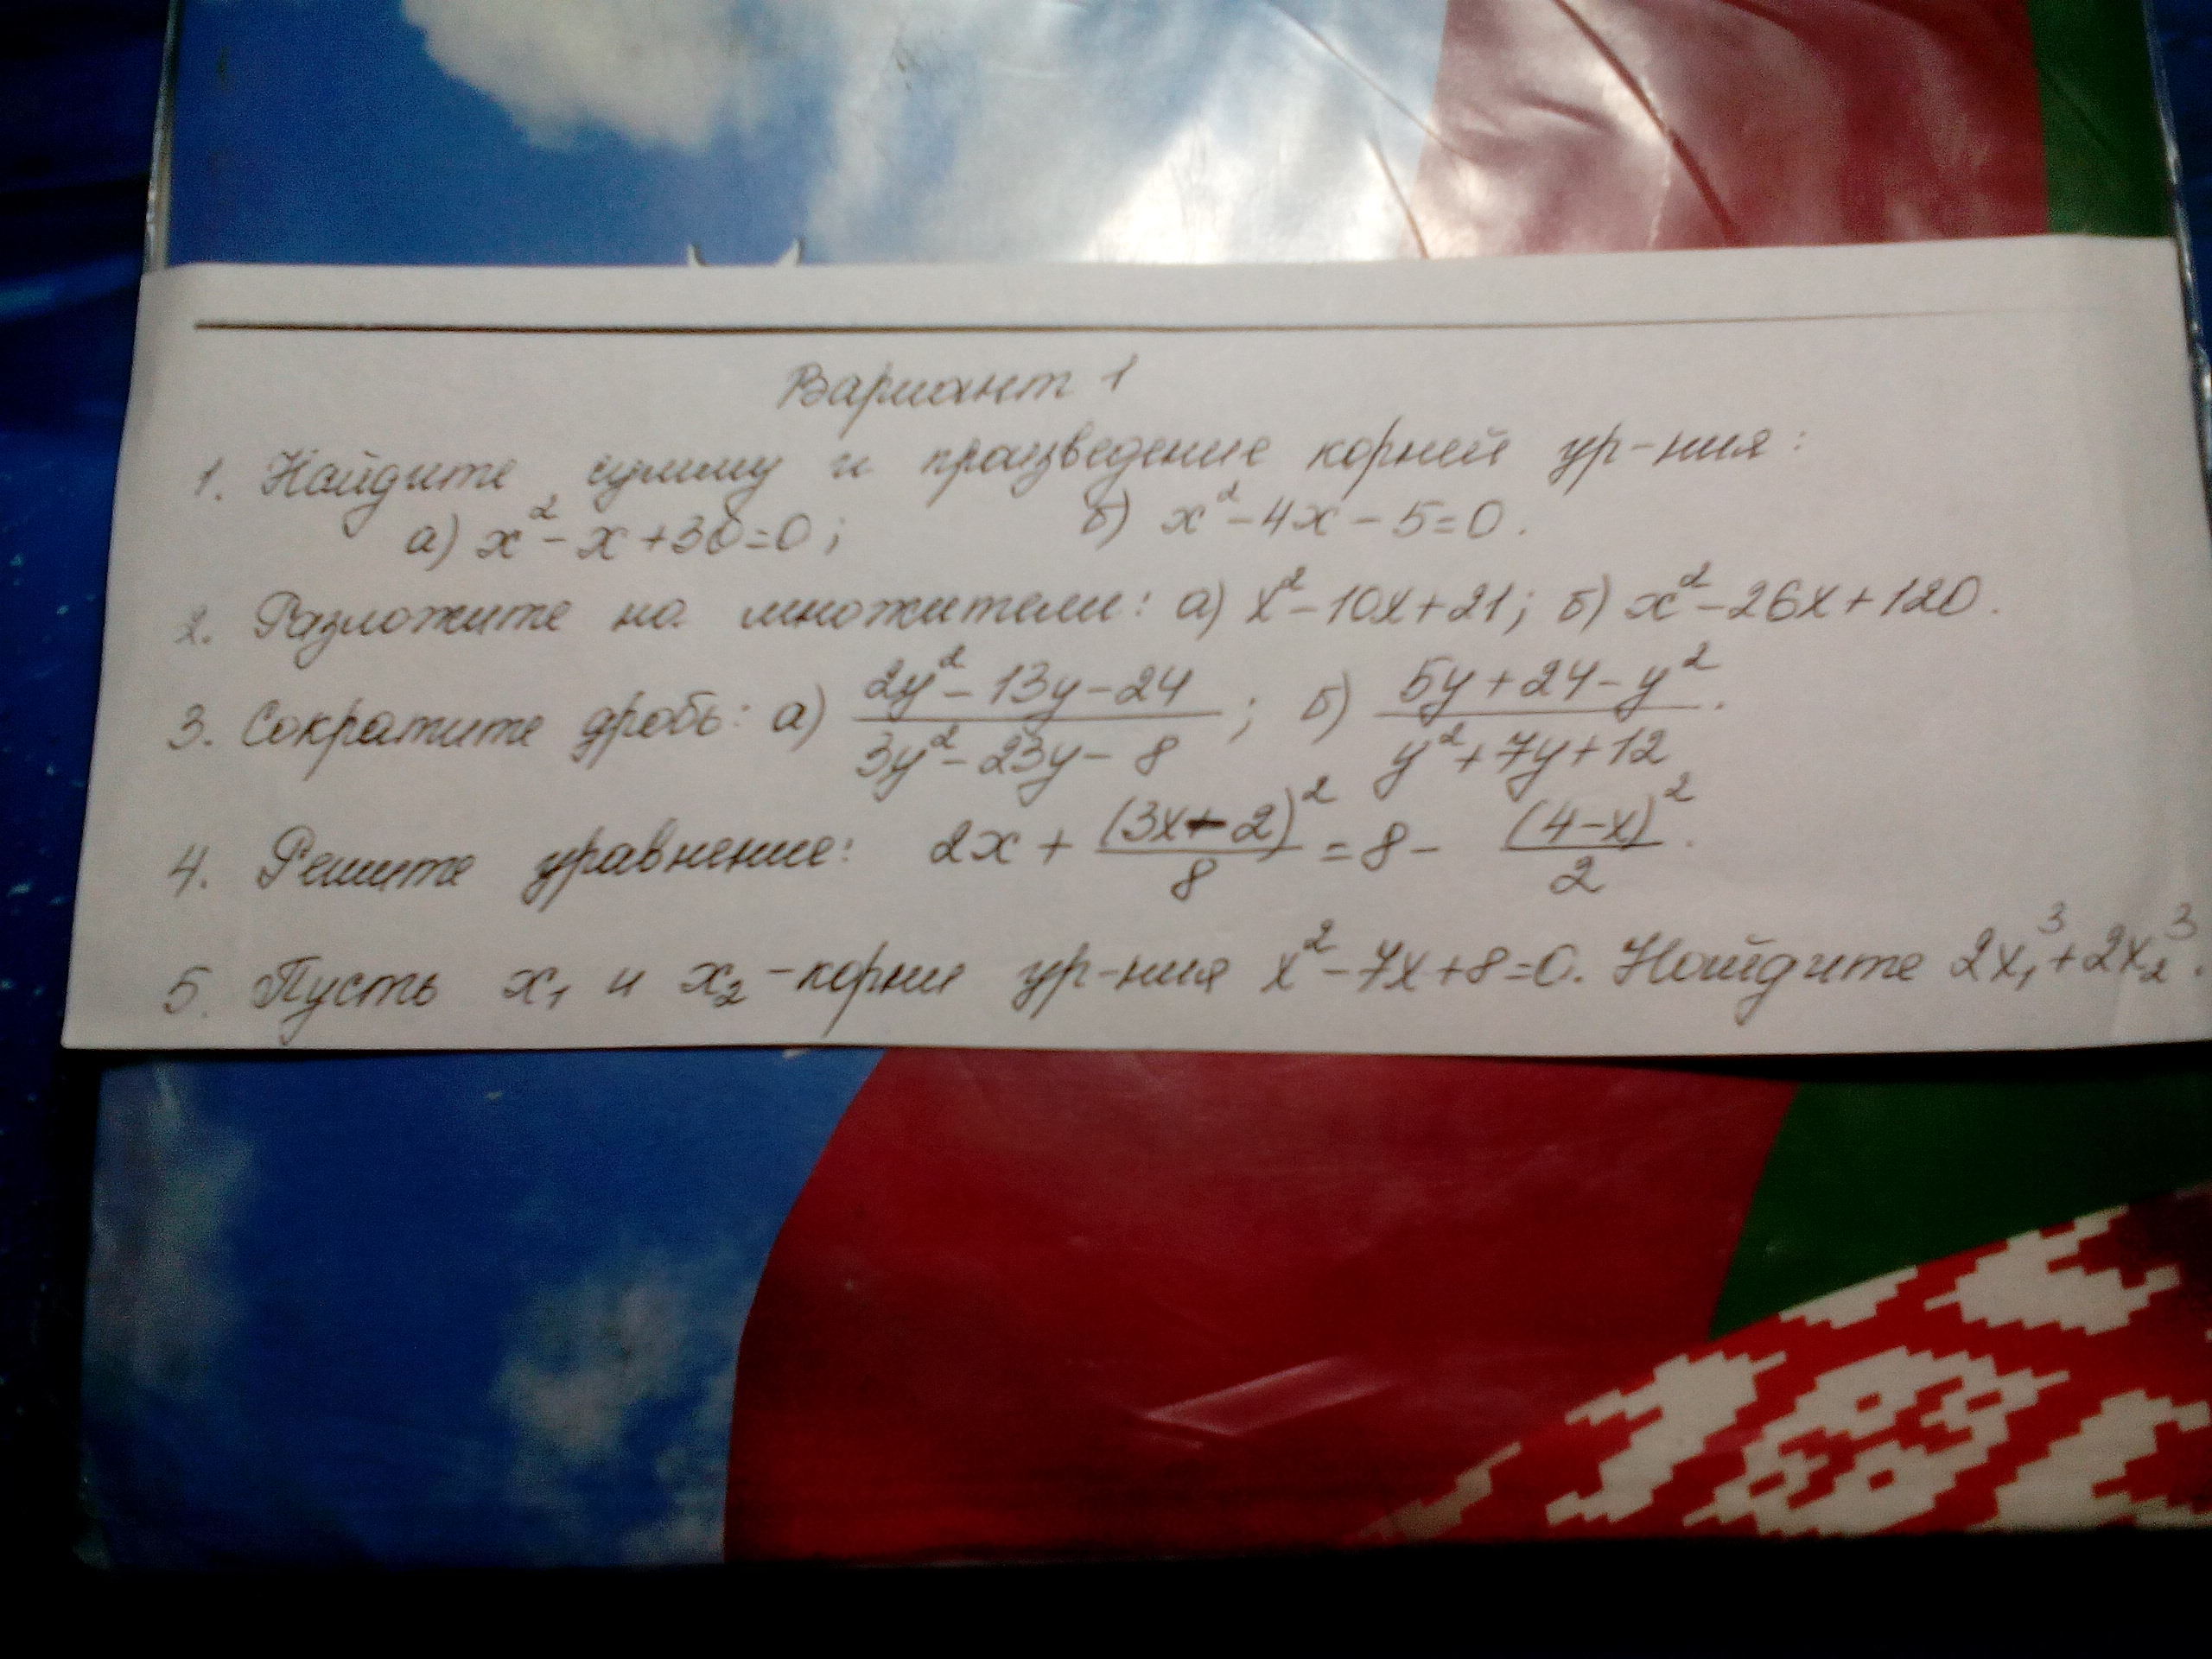 Вариант 1
1. Найдите сумму и произведение корней ур-ния:
а) x²-x+30=0; б) x²-4x-5=0.
2. Разложите на множители: а) x²-10x+21; б) x²-26x+120.
3. Сократите дробь: а) (2y²-13y-24)/(3y²-23y-8); б) (5y+24-y²)/(y²+7y+12).
4. Решите уравнение: 2x+(3x-2)²/8=8-(4-x)²/2.
5. Пусть x₁ и x₂-корни ур-ния x²-7x+8=0. Найдите 2x₁³+2x₂³.